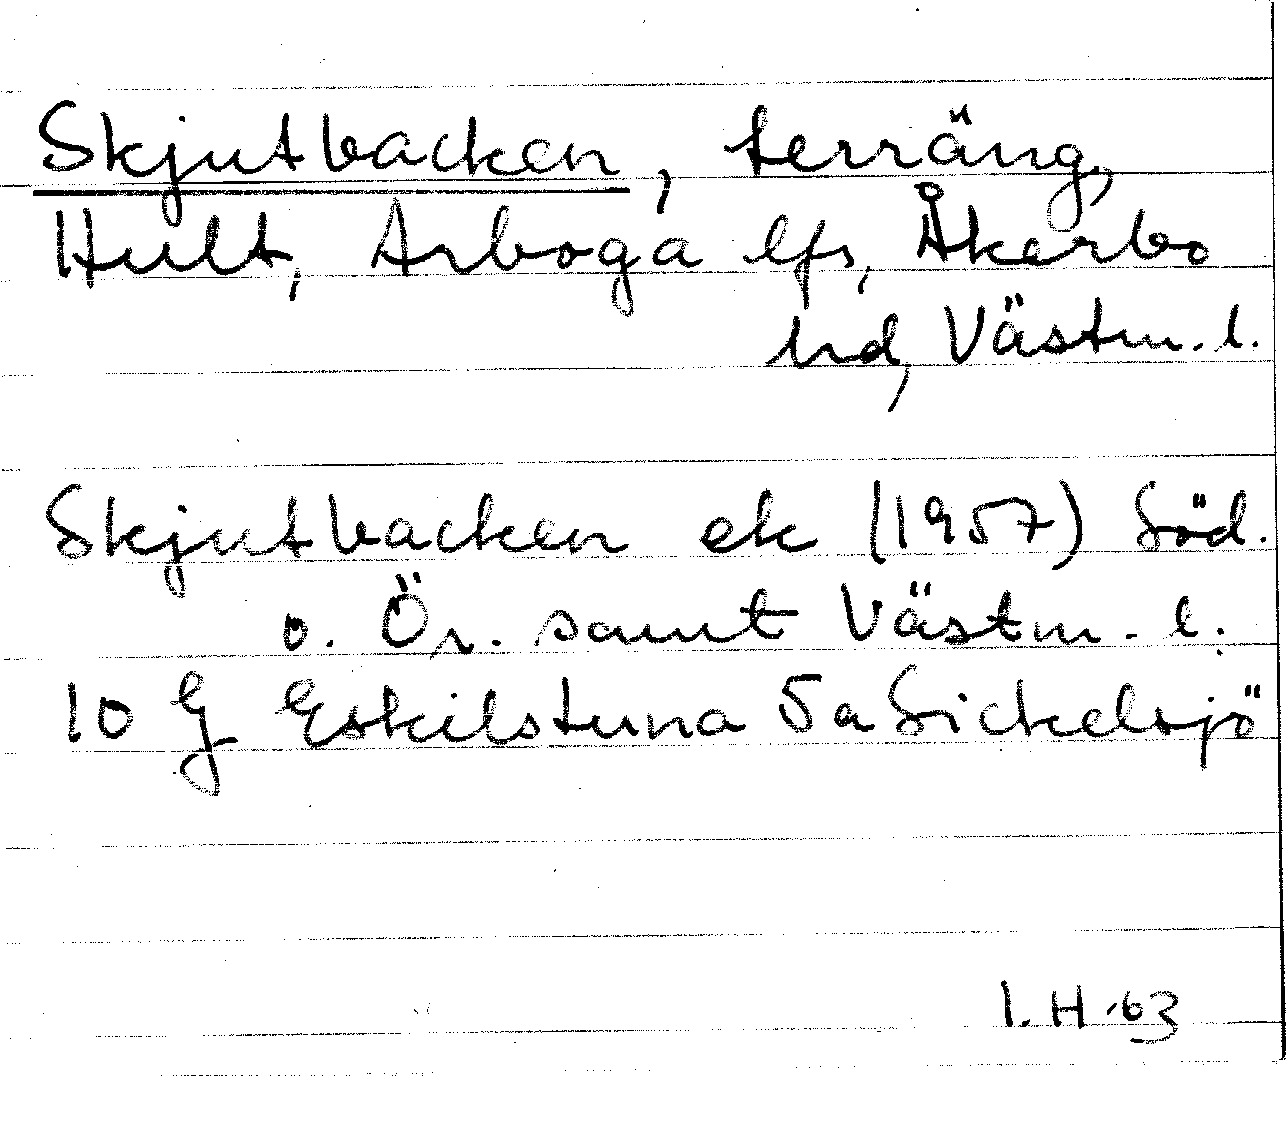 Skjutbacken, terräng,
Hult, Arboga lfs, Åkerbo
hd, Västm. l.
Skjutbacken ek (1957) Söd.
o. Ör. samt Västm. l.
10 G Eskilstuna 5a Sickelsjö
I. H. 63